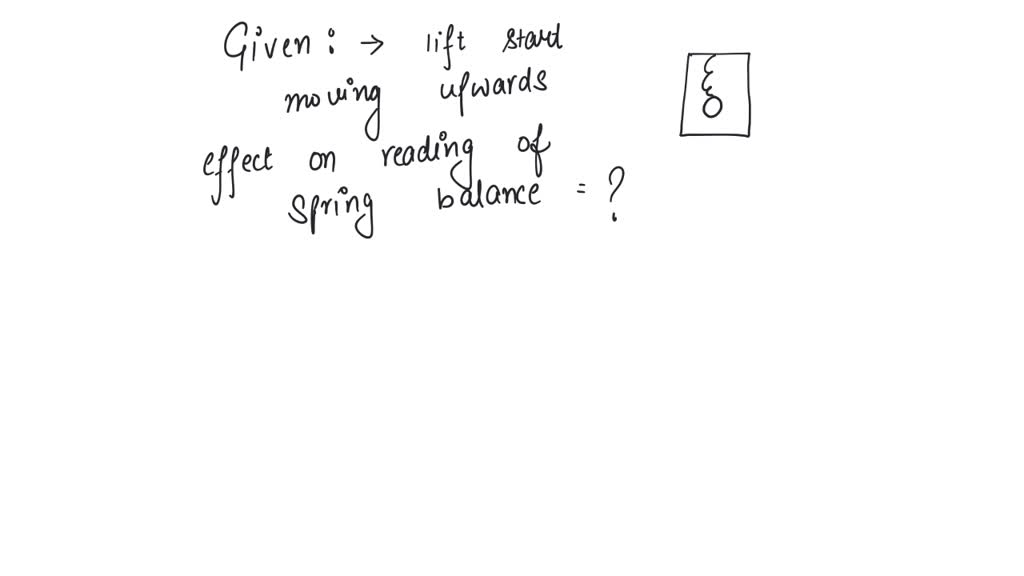 Given : → lift start
moving upwards
effect on reading of
spring balance = ?